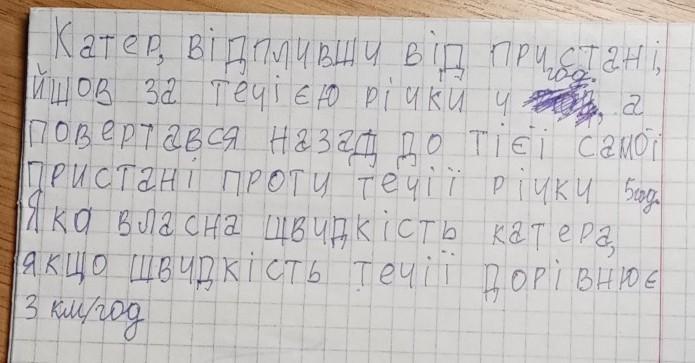 Катер, відпливши від пристані,
йшов за течією річки 4 год., а
повертався назад до тієї самої
пристані проти течії річки 5год.
Яка власна швидкість катера,
якщо швидкість течії дорівнює
3 км/год